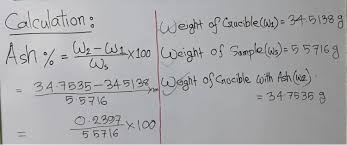 Calculation:
Ash % = ω₂-ω₁/ωₛ ×100
= 34.7535-34.5138/5.5716 ×100
= 0.2397/5.5716 ×100
Weight of Crucible (ω₁) = 34.5138 g
Weight of Sample (ωₛ) = 5.5716 g
Weight of Crucible with Ash (ω₂)
= 34.7535 g